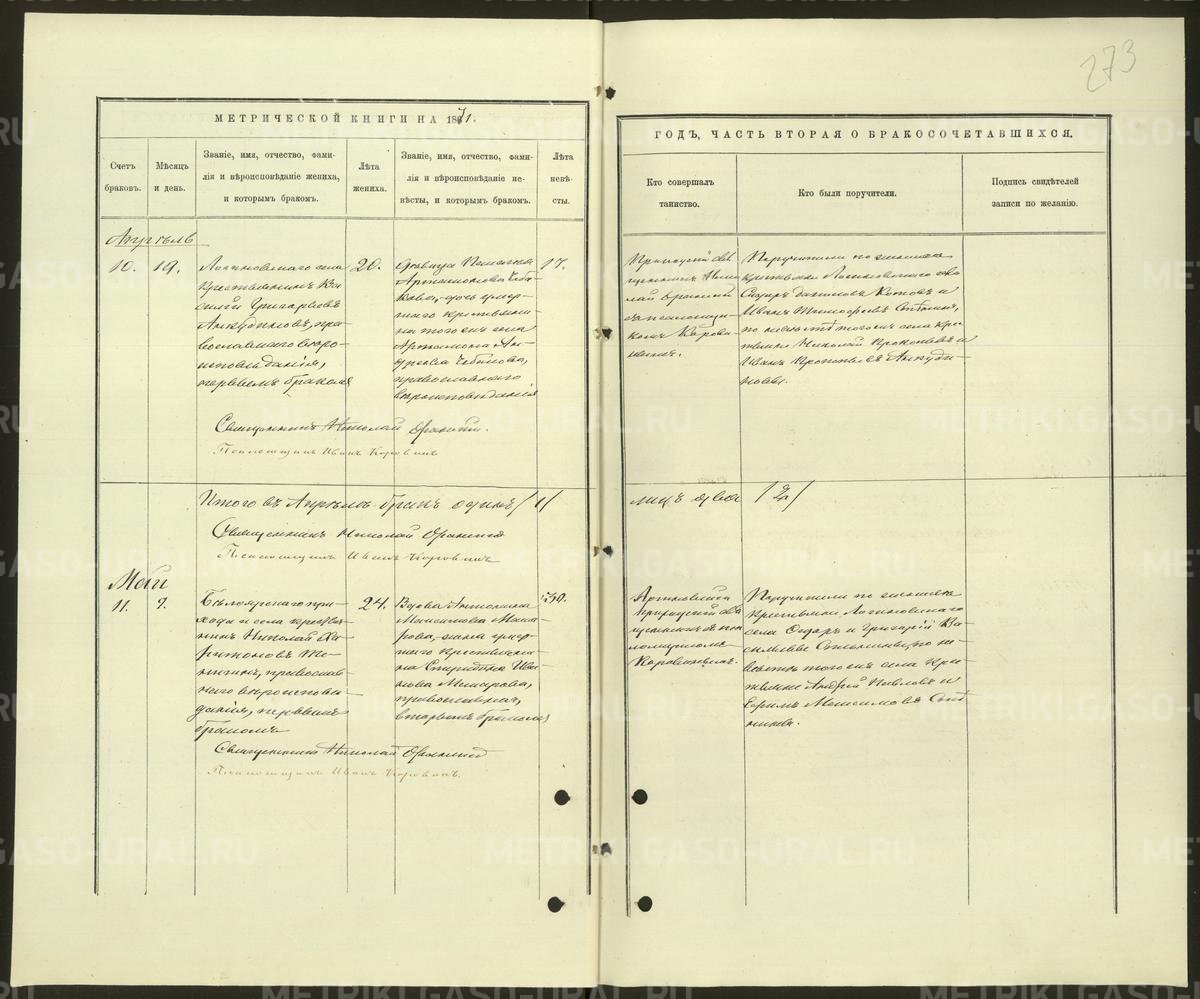 273
МЕТРИЧЕСКОЙ КНИГИ НА 1871.
ГОДЪ, ЧАСТЬ ВТОРАЯ О БРАКОСОЧЕТАВШИХСЯ.
Счетъ
браковъ.
Мѣсяцъ
и день.
Званіе, имя, отчество, фами-
лія и вѣроисповѣданіе жениха,
и которымъ бракомъ.
Лѣта
жениха.
Званіе, имя, отчество, фами-
лія и вѣроисповѣданіе не-
вѣсты, и которымъ бракомъ.
Лѣта
невѣ-
сты.
Кто совершалъ
таинство.
Кто были поручители.
Подпись свидѣтелей
записи по желанію.
Апрѣль
10.
19.
Логиновскаго села
крестьянинъ Ва-
силій Григорьевъ
Анкудиновъ, пра-
вославнаго вѣро-
исповѣданія,
первымъ бракомъ
20.
дѣвица Пелагія
Артамонова
дочь умер-
шаго крестьяни-
на того же села
Артамона Ан-
дреева
православнаго
вѣроисповѣданія
17.
Приходскій свя
щенникъ Нико
лай
съ псаломщи-
комъ Корови-
нымъ.
Поручители по женихѣ
крестьяне Логиновскаго села
Иванъ Тимофеевъ
по невѣстѣ того же села кре-
стьяне Николай Прокопьевъ и
Иванъ Прокопьевъ Анкуди-
новы.
Священникъ Николай
Псаломщикъ Иванъ Коровинъ
Итого въ Апрѣлѣ бракъ одинъ /1/
лицъ двое /2/
Священникъ Николай
Псаломщикъ Иванъ Коровинъ
Май
11.
9.
Бѣлоярскаго при-
хода и села крестья-
нинъ Николай Ха-
ритоновъ
православ-
наго вѣроисповѣ-
данія, первымъ
бракомъ
24.
Вдова Антонина
Максимова
жена умер-
шаго крестьяни-
на Спиридона Ива-
нова
православная,
вторымъ бракомъ
30.
Приходскій свя
щенникъ съ пса
ломщикомъ
Коровинымъ.
Поручители по женихѣ
крестьяне Логиновскаго
села Ѳедоръ и Григорій Ва-
сильевы по не-
вѣстѣ того же села кре-
стьяне Андрей Павловъ и
Максимовъ
Священникъ Николай
Псаломщикъ Иванъ Коровинъ.
METRIKI.GASO-URAL.RU